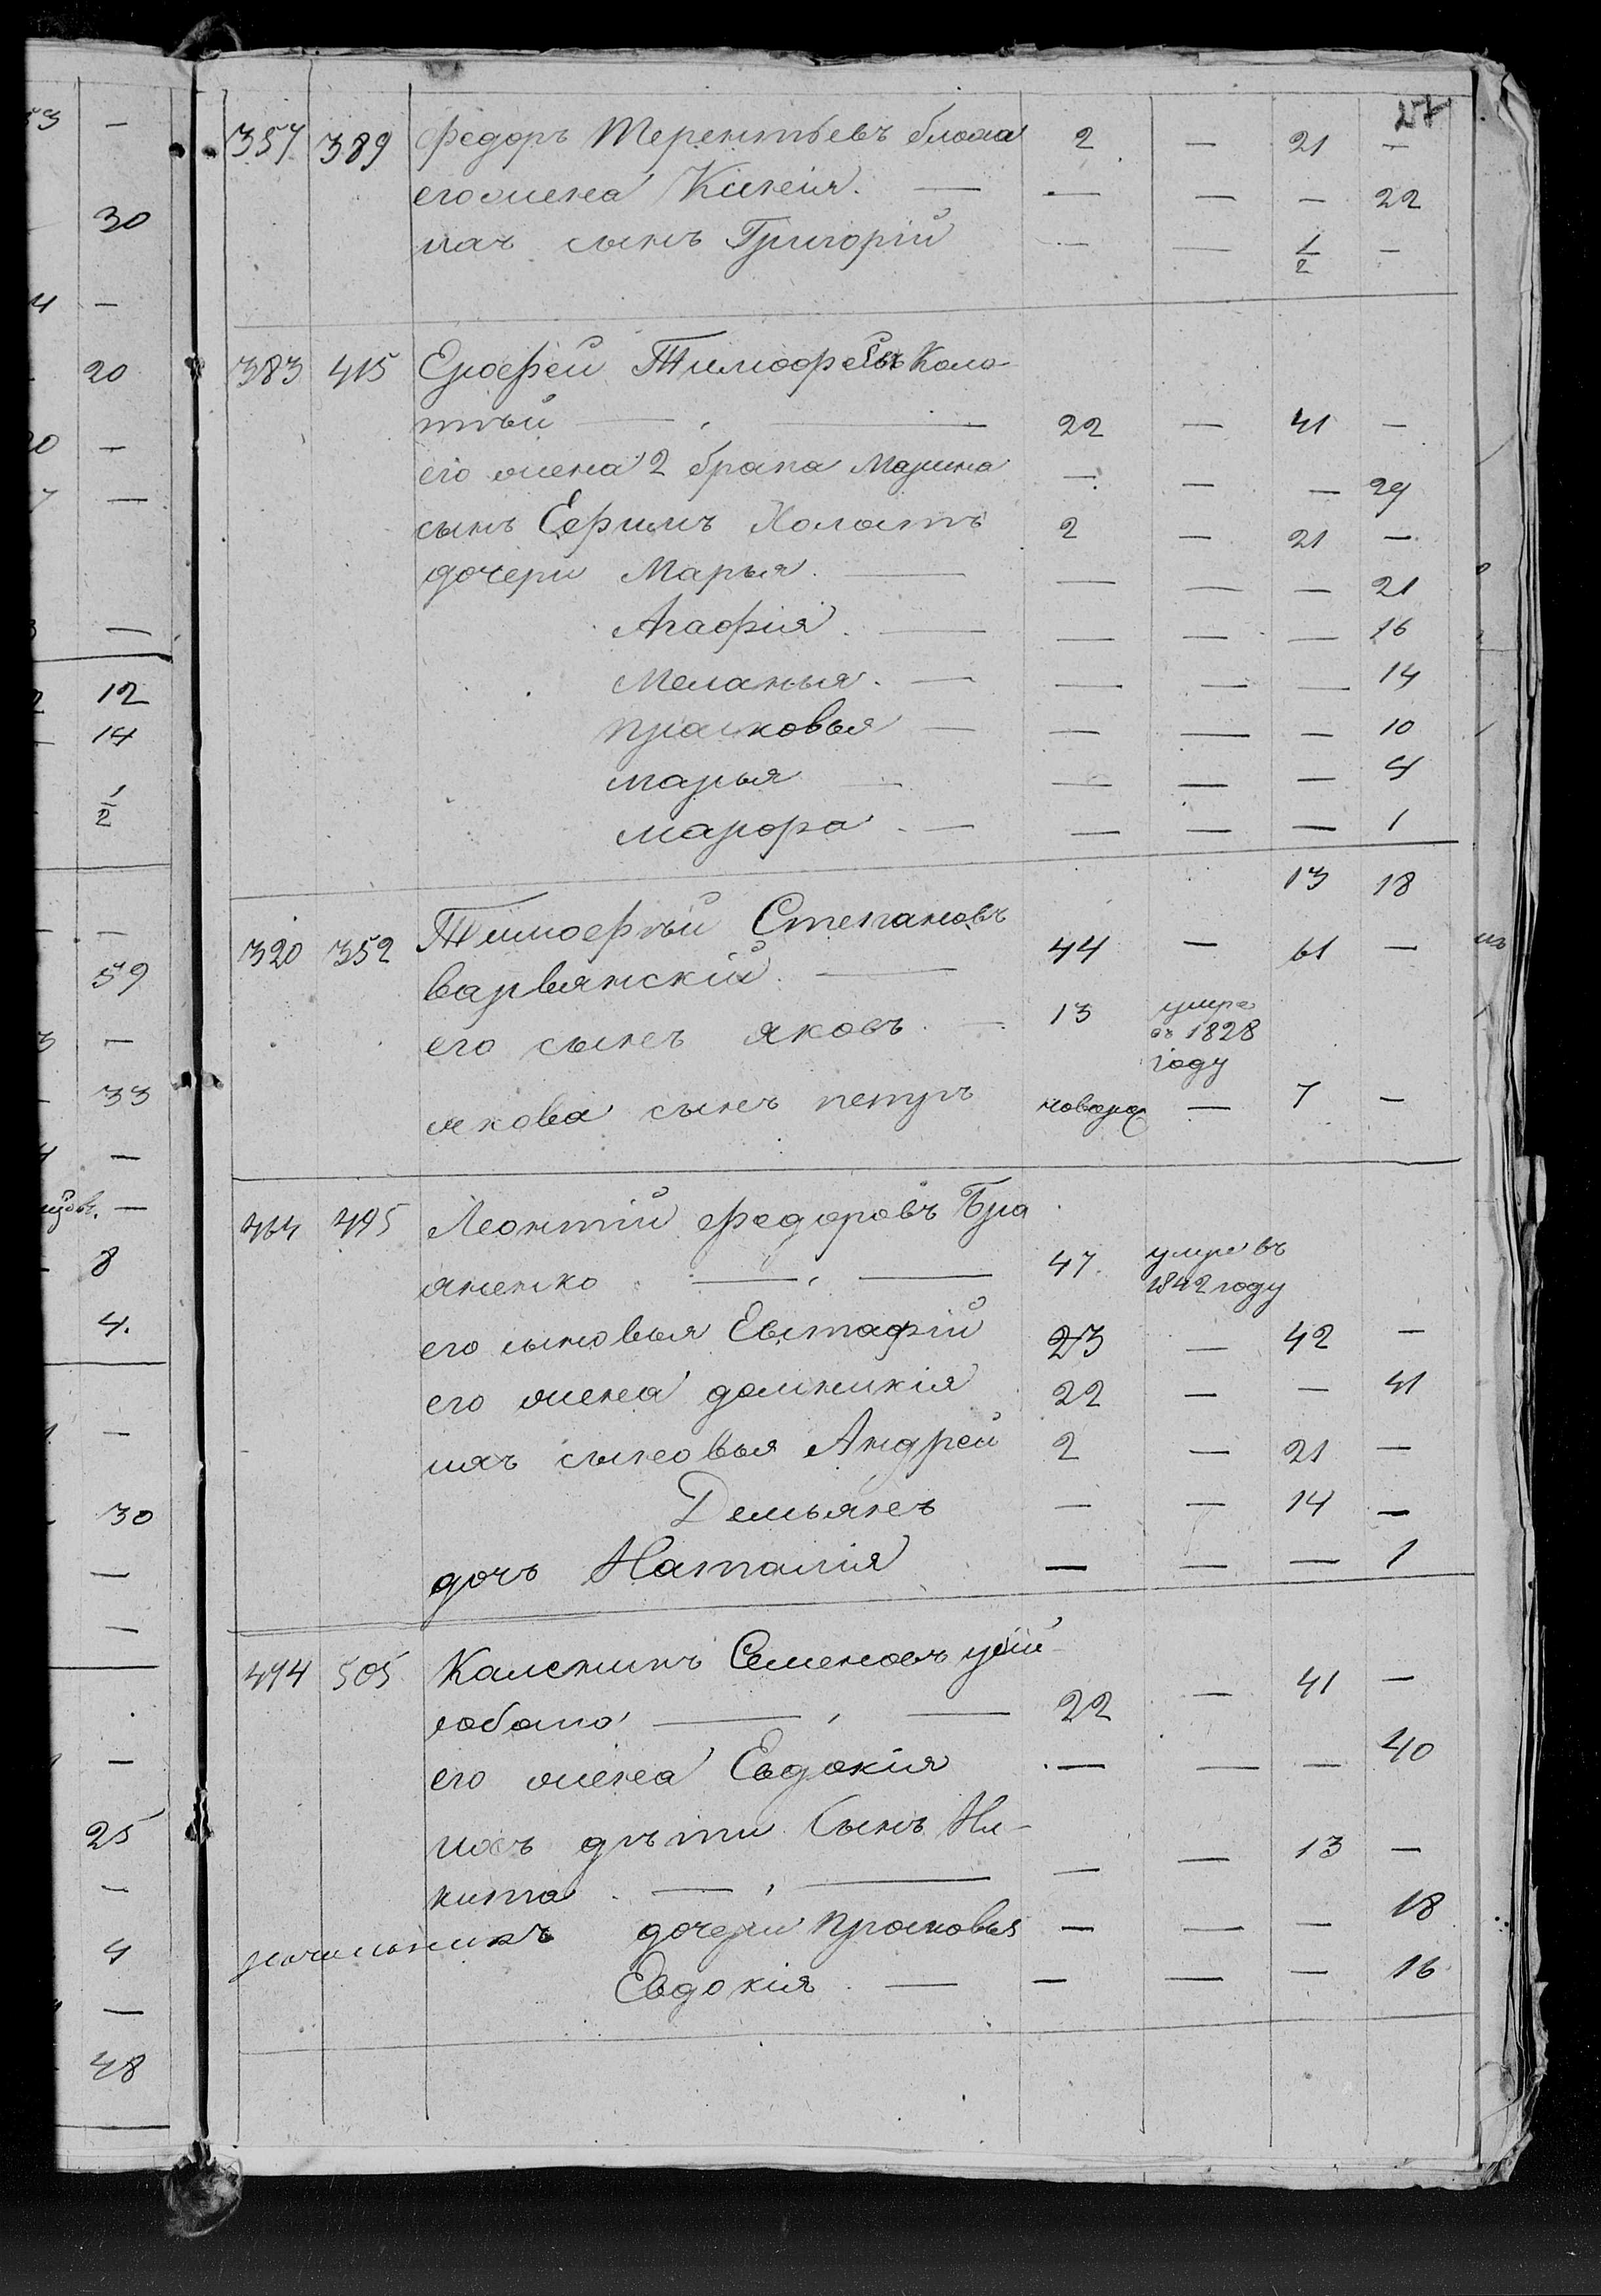 27
357 389 Федоръ Терентьевъ блоха 2 — 21 —
его жена Ксенія. — — — — 22
ихъ сынъ Григорій — — 1/2 —
383 415 Ерофей Тимофеевъ Коло-
тый — 22 — 41 —
его жена 2 брака Марина — — — 29
сынъ Ефимъ Холостъ 2 — 21 —
дочери Марья. — — — — 21
Агафія. — — — — 16
Меланья. — — — — 14
Прасковья — — — — 10
Марья — — — — 4
Марфа — — — — 1
13 18
320 352 Тимофей Степановъ
Варвянскій. — 44 — 61 —
его сынъ Яковъ. — 13 умре
въ 1828
году
Якова сынъ Петръ новорож — 7 —
464 495 Леонтій Федоровъ Бра
яненко — 47. умре въ
1842 году
его сыновья Евстафій 23 — 42 —
его жена Домникія 22 — — 41
ихъ сыновья Андрей 2 — 21 —
Демьянъ — — 14 —
дочь Наталія — — — 1
494 505 Калиникъ Семеновъ
— 22 — 41 —
его жена Евдокія — — — 40
ихъ дѣти Сынъ Ни-
кита — — — 13 —
дочери Прасковья — — — 18
Евдокія. — — — — 16